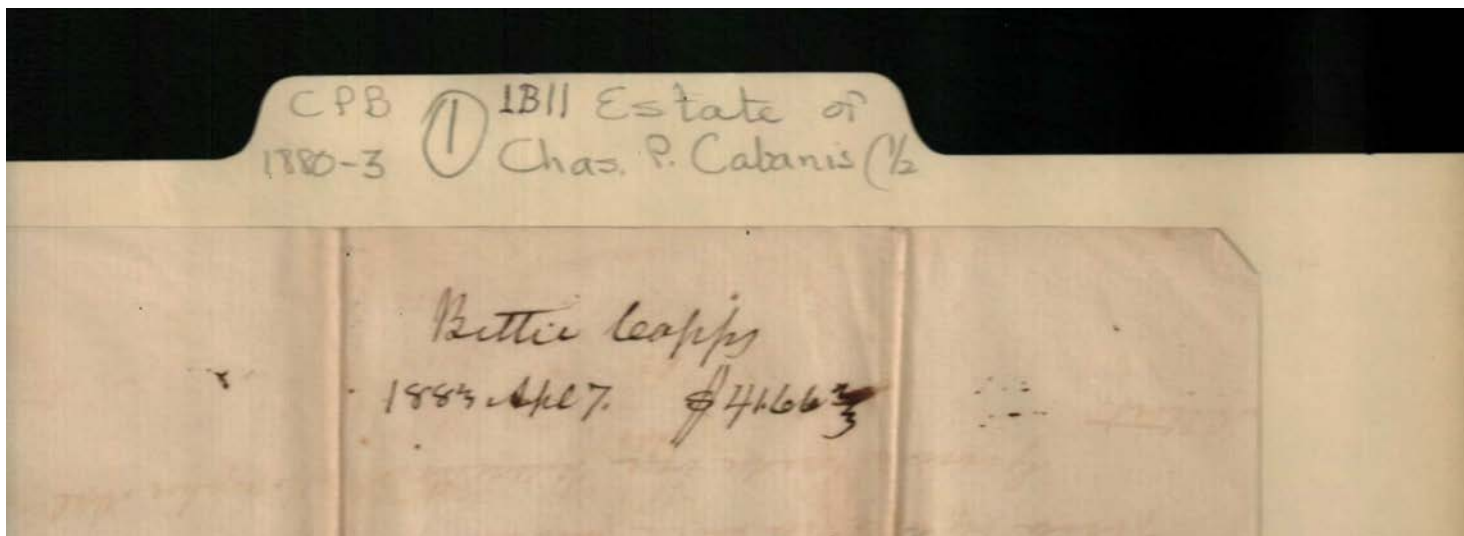 CPB ① 1B11 Estate of
1880-3 Chas. P. Cabanis (1/2
Bettie Capps
1883 Apl 7. $41.66 2/3